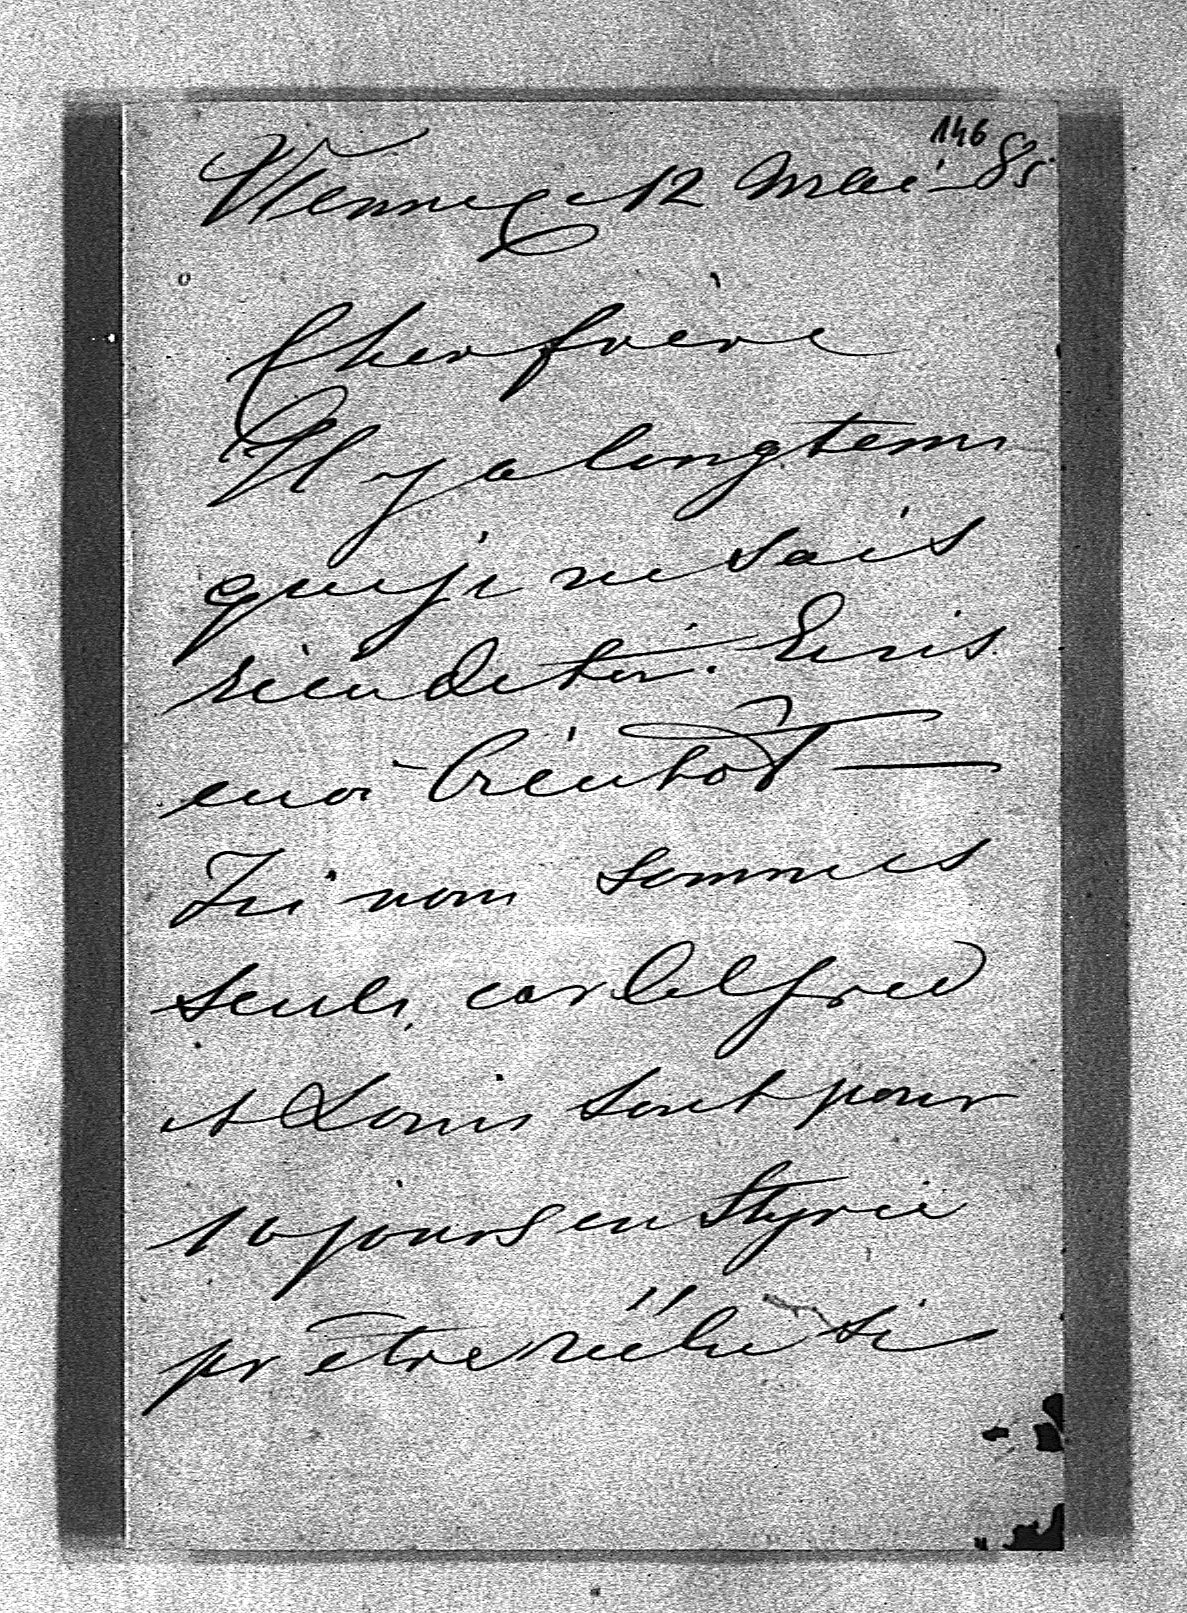 146
Vienne ce 12 Mai 85
Cher frère
Il y a longtems
que je ne sais
rien de toi. Ecris
moi bientôt —
Ici nous sommes
seuls, car Alfred
et Louis sont pour
10 jours en Styrie
pr être réélu si